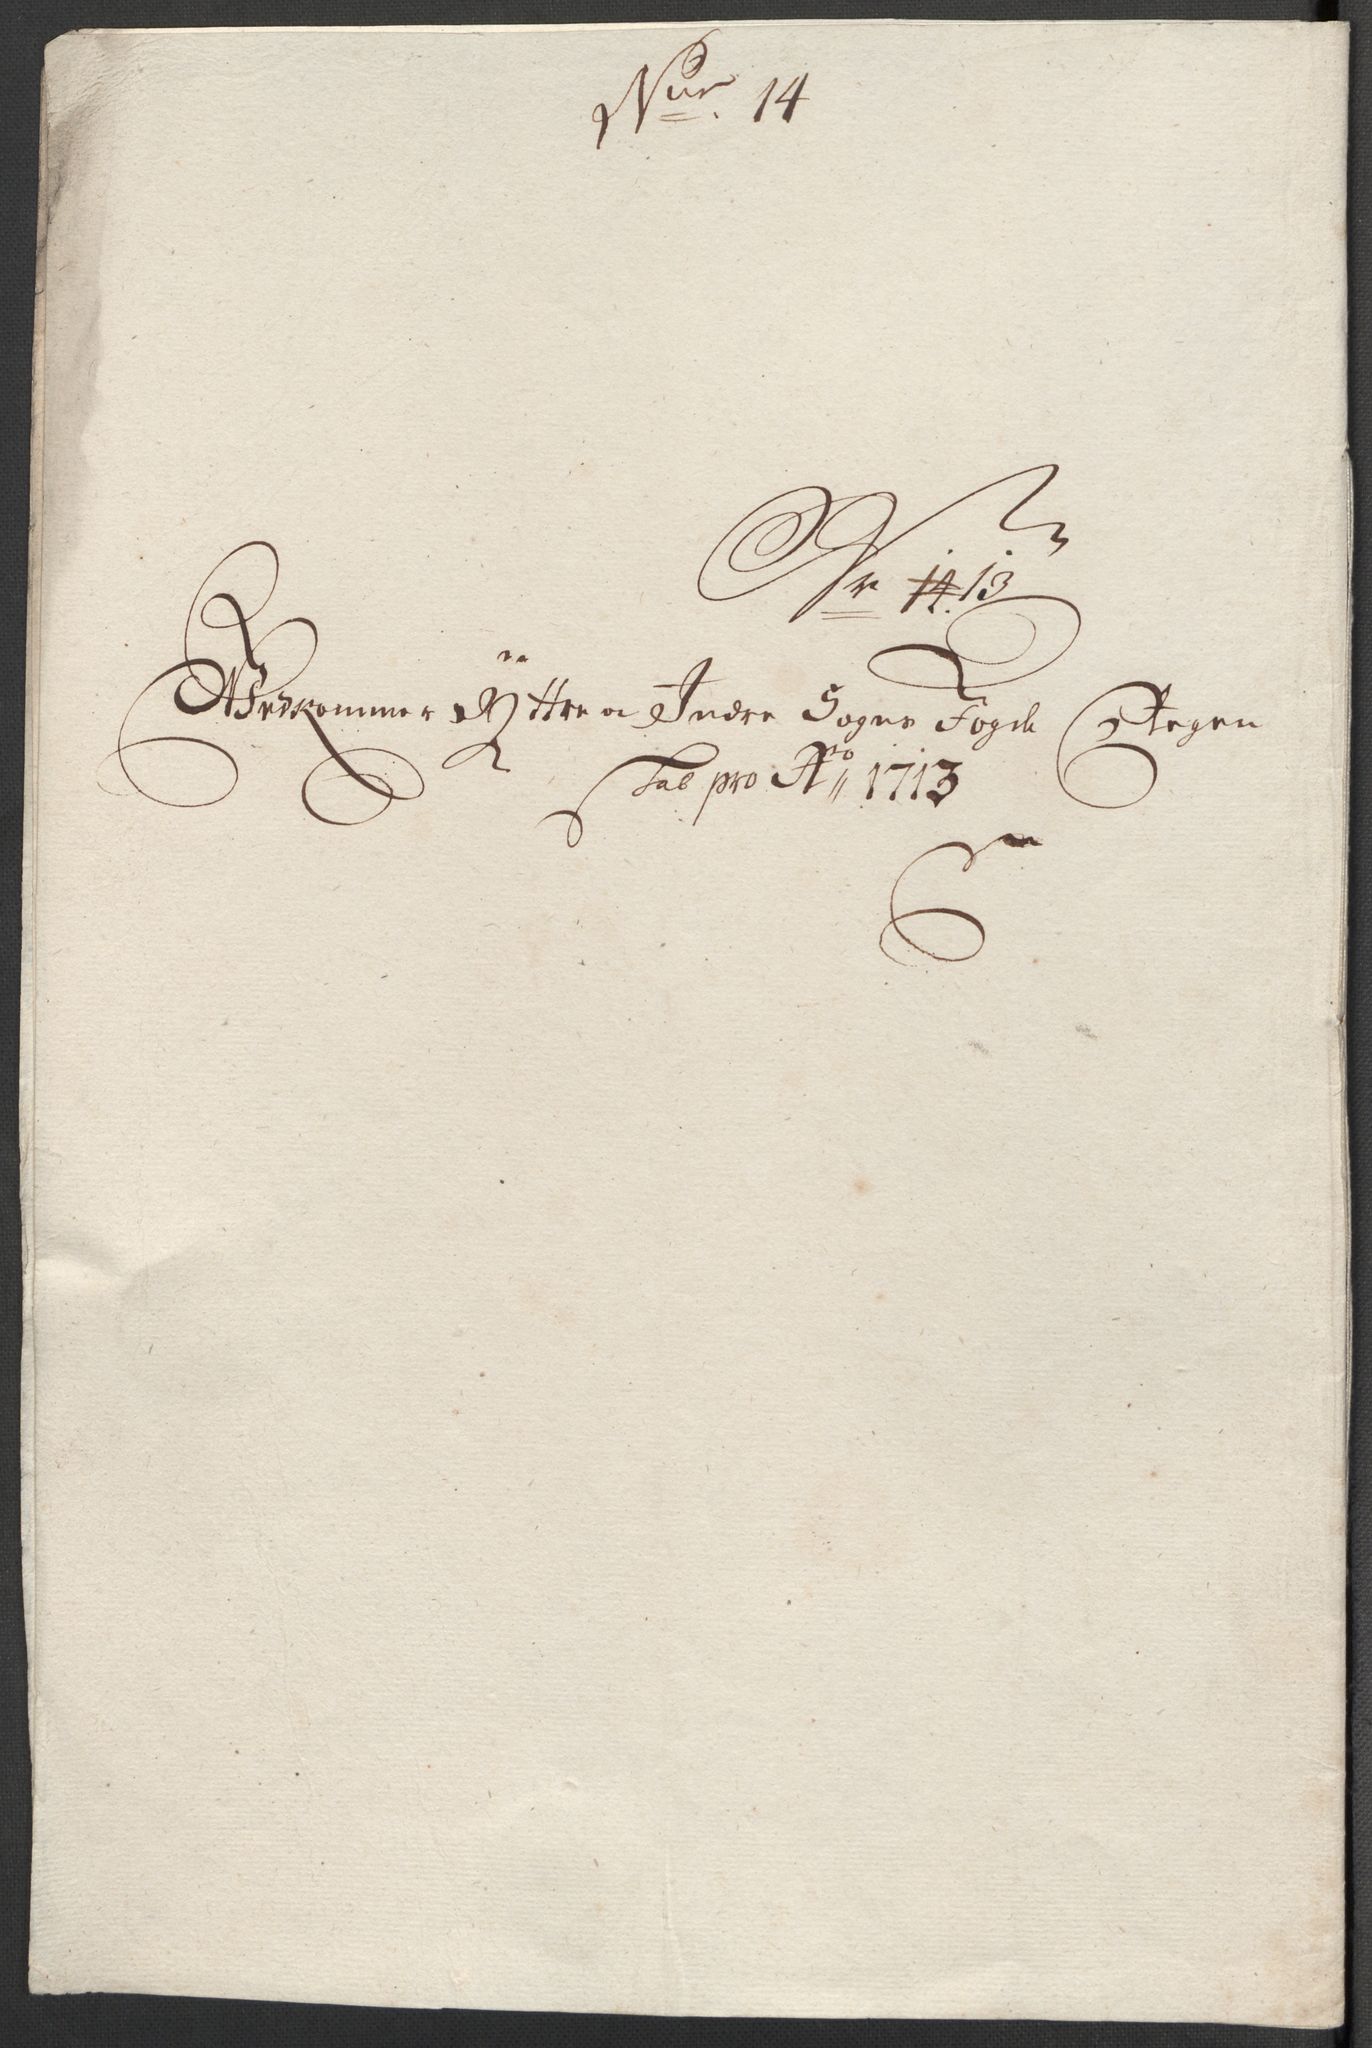 Nur. 14
Nr 14. 13
Wedkommer Ÿttre oc Indre Sogns Fogde Regen
skab pro Ao 1713